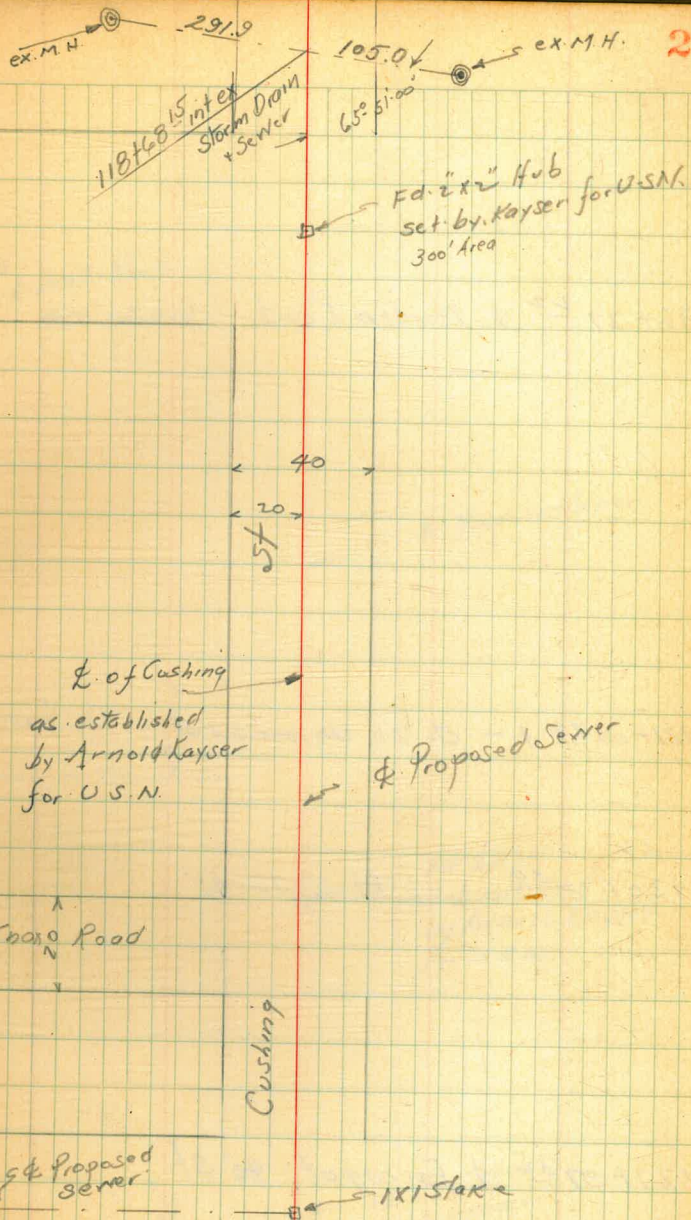 2
ex. M. H.
291.9
105.0
ex. M. H.
65° 51' 00"
118+68.15 int ex
Storm Drain
+ Sewer
Fd. 2" x 2" Hub
set by Kayser for U.S.N.
300' Area
40
20
St
℄ of Cushing
as established
by Arnold Kayser
for U.S.N.
℄ Proposed Sewer
Road
20
Cushing
℄ Proposed
sewer
1x1 Stake